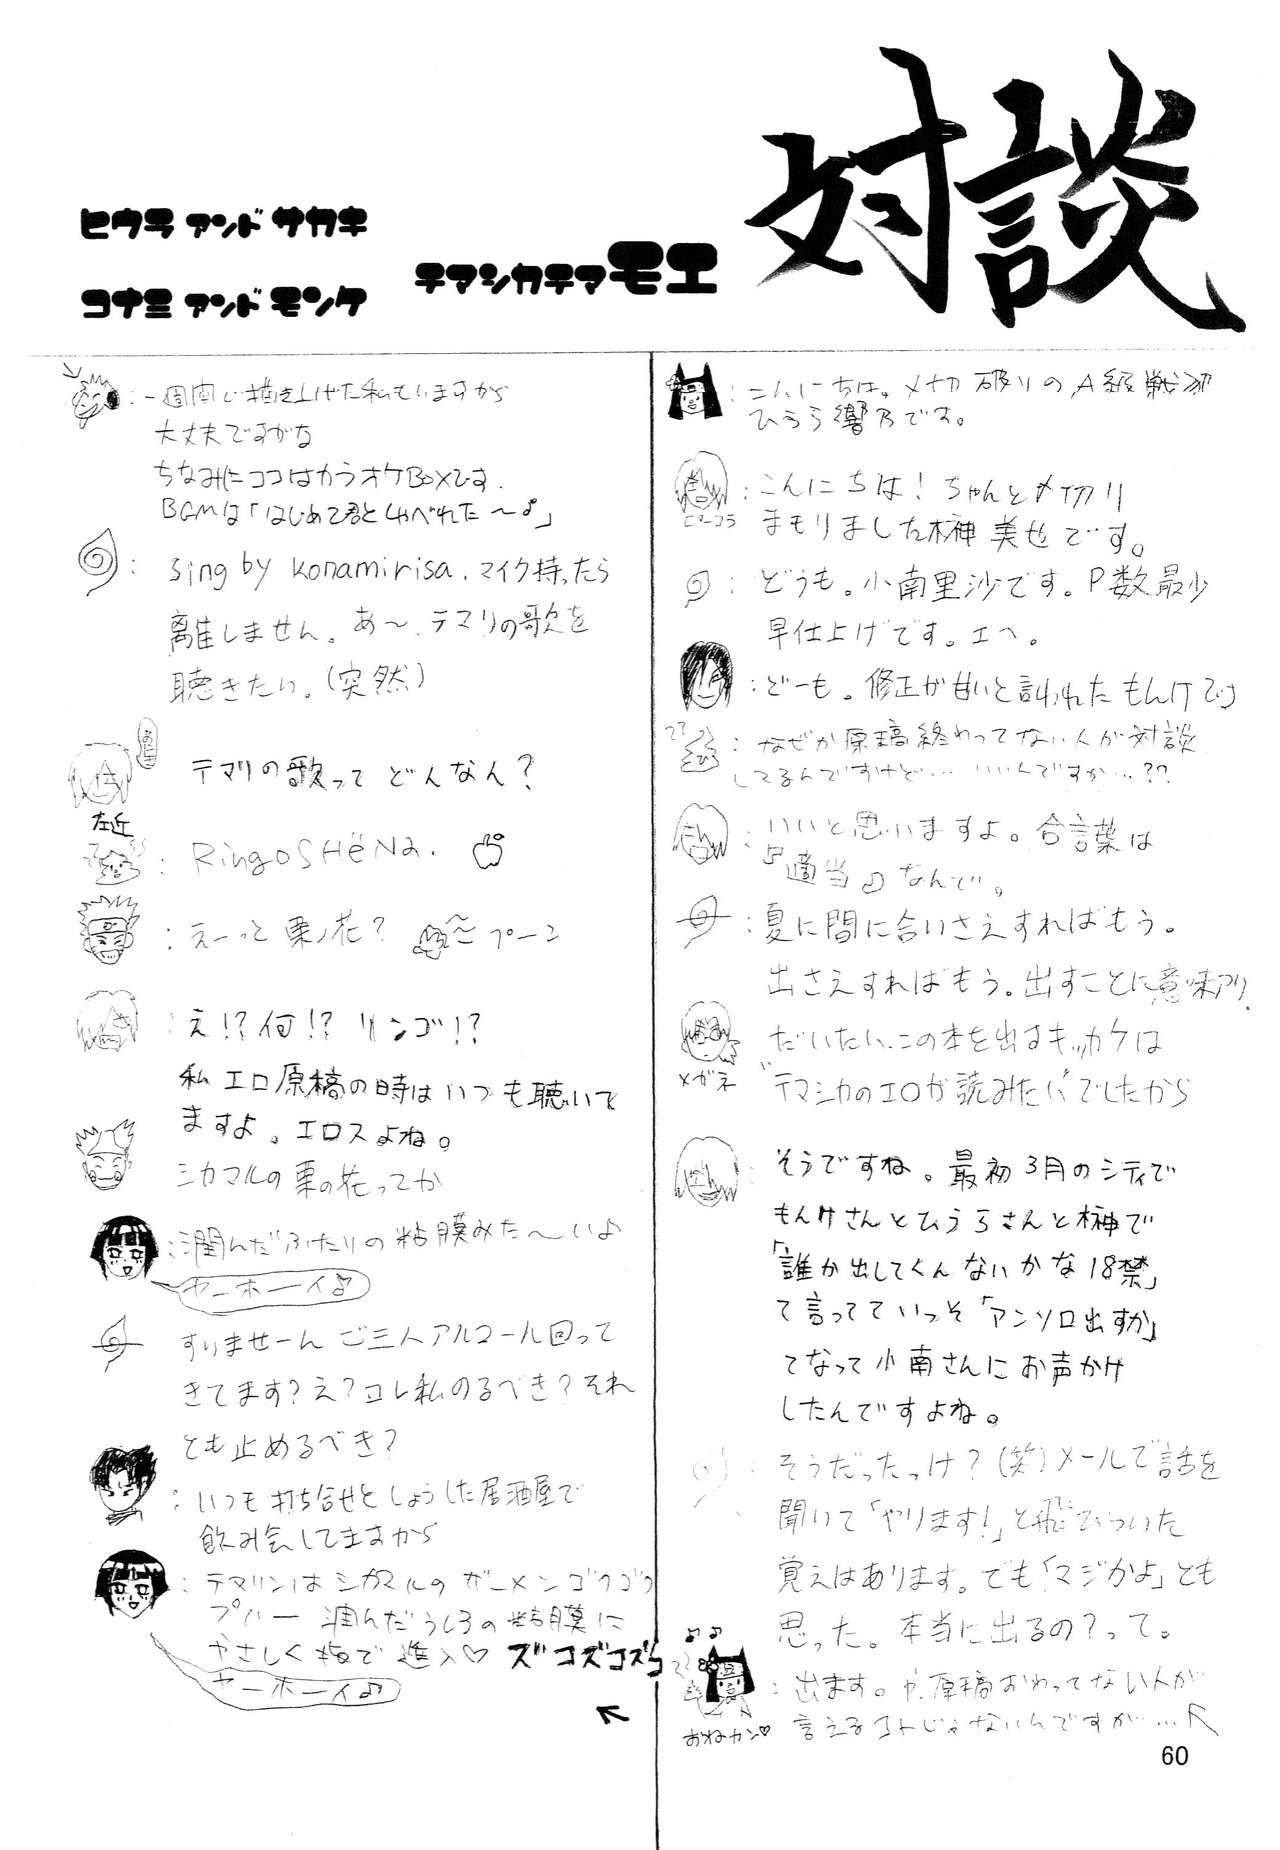 対談
テマシカテマモエ
ヒウラ アンド サカキ
コナミ アンド モンケ
：こんにちは。〆切破りのA級戦犯
ひうら響乃です。
：こんにちは！ちゃんと〆切り
まもりました榊美也です。
ピコーラ
：どうも。小南里沙です。P数最少
早仕上げです。エヘ。
：どーも。修正が甘いと言われたもんけです
：なぜか原稿終わってない人が対談
してるんですけど…いいんですか…??
：いいと思いますよ。合言葉は
『適当♪』なんで。
：夏に間に合いさえすればもう。
出さえすればもう。出すことに意味アリ。
メガネ
だいたい、この本を出すキッカケは
"テマシカのエロが読みたい"でしたから
：そうですね。最初3月のシティで
もんけさんとひうらさんと榊で
「誰か出してくんないかな18禁」
て言ってていっそ「アンソロ出すか」
てなって小南さんにお声かけ
したんですよね。
：そうだったっけ？(笑)メールで話を
聞いて「やります！」と飛びついた
覚えはあります。でも「マジかよ」とも
思った。本当に出るの？って。
♪♪
：出ます。や、原稿おわってない人が
言えるコトじゃないんですが…
おねカン♡
：一週間で描き上げた私っていますから
大丈夫ですがな
ちなみにココはカラオケBoxです。
BGMは「はじめて君としゃべれた〜♪」
：sing by konamirisa.マイク持ったら
離しません。あ〜、テマリの歌を
聴きたい。(突然)
テマリの歌って どんなん？
左近
：RingoSHëNa.
：えーっと 栗ノ花？ 〜プーン
：え!?何!? リンゴ!?
私 エロ原稿の時はいつも聴いて
ますよ。エロスよね。
シカマルの栗の花ってか
：潤んだふたりの粘膜みた〜い♪
ヤーホーイ♪
すいませーん ご三人アルコール回って
きてます？え？コレ私のるべき？それ
とも止めるべき？
：いつも打ち合せとしょうした居酒屋で
飲み会してますから
：テマリンはシカマルのザーメンゴクゴク
プハー 潤んだうしろの粘膜に
やさしく指で進入♡ ズコズコズコ
ヤーホーイ♪
60